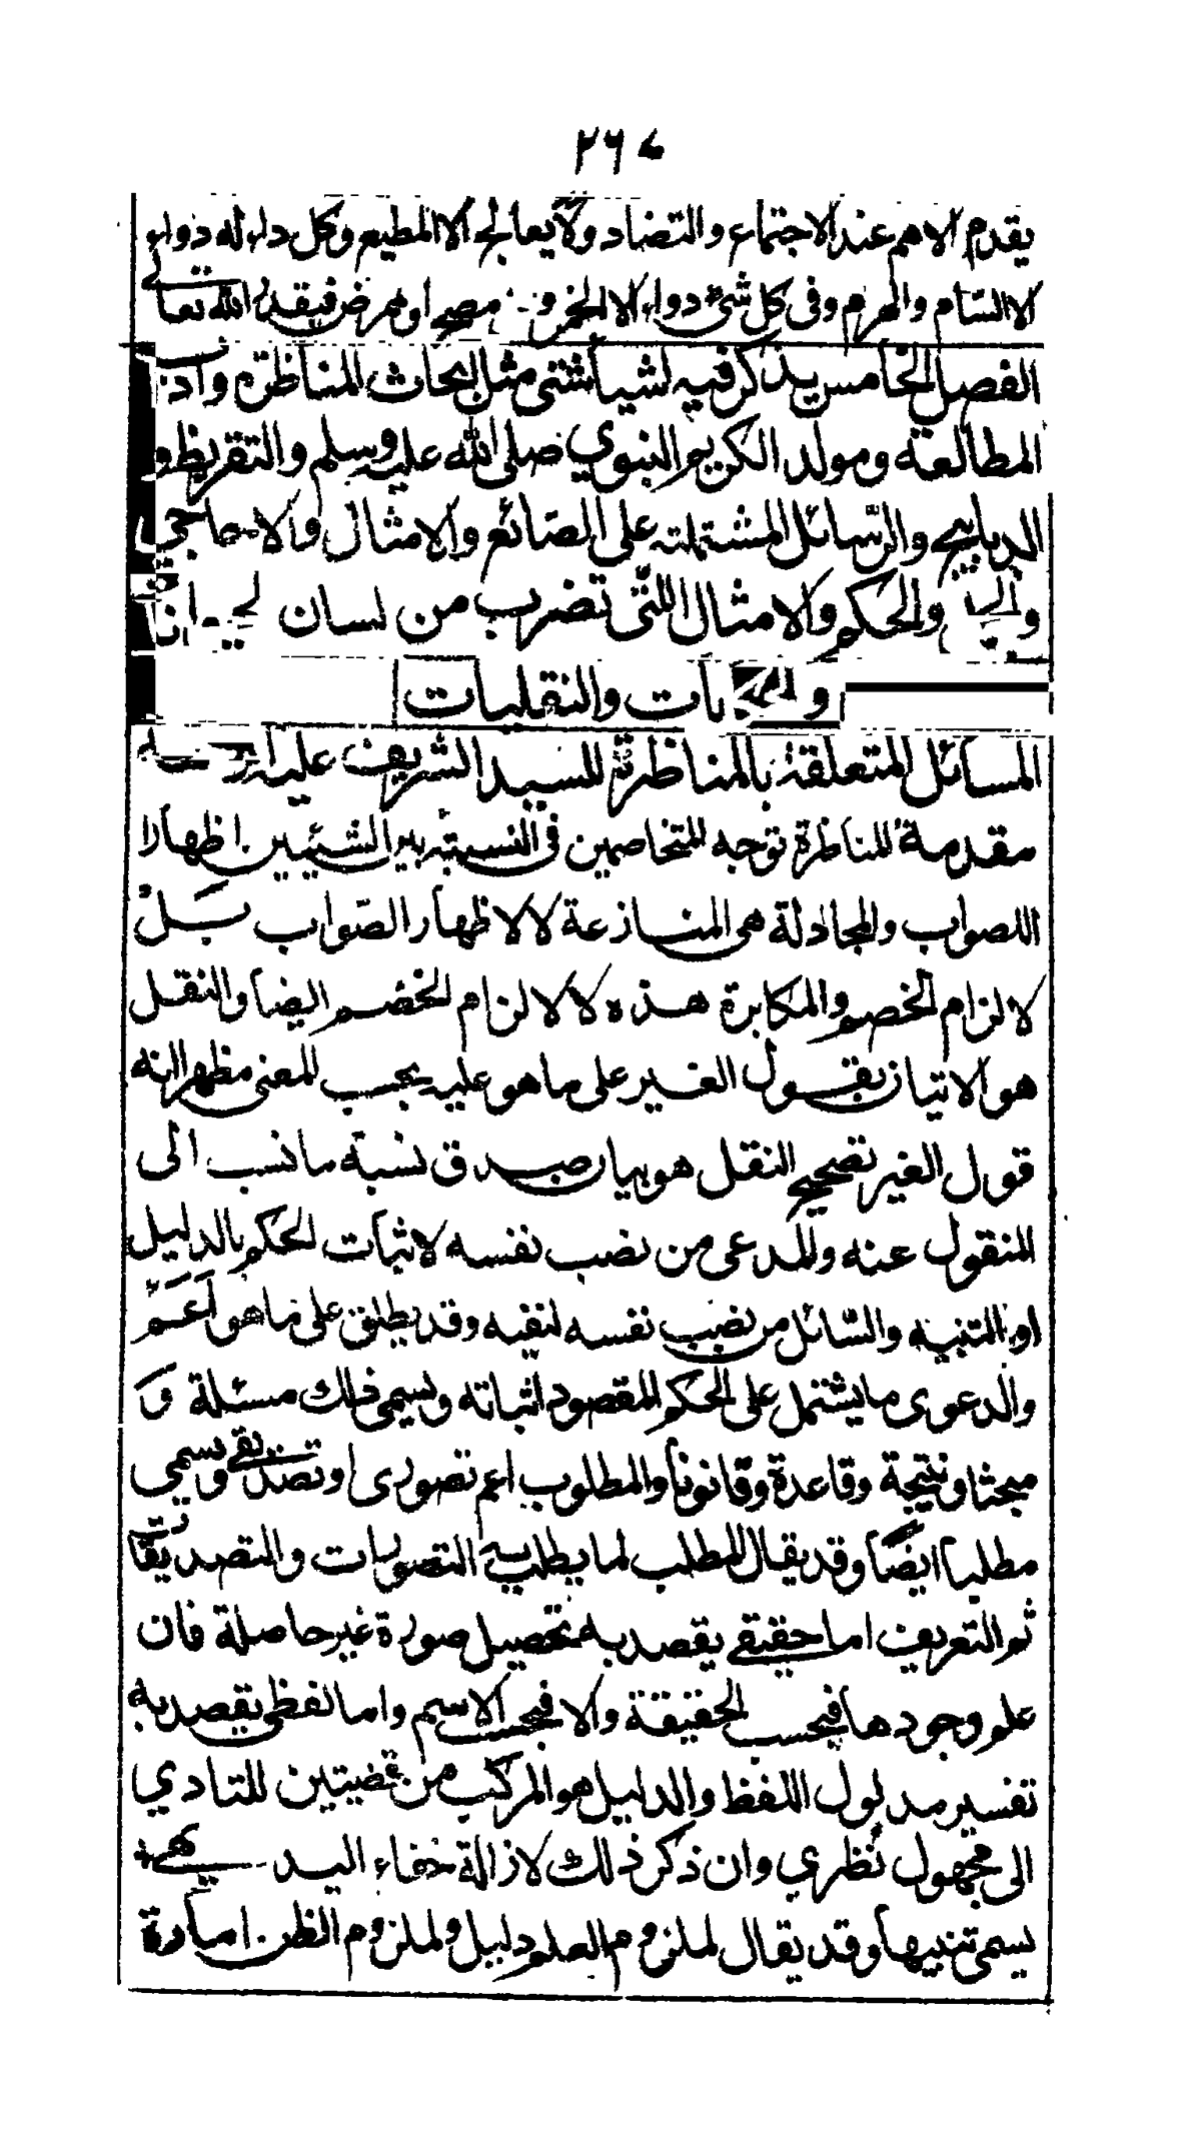 ٢٦٧
يقدم الاهم عند الاجتماع والتضاد ولا يعالج الا المطيع ولكل داء له دواء
الا السّام والهرم وفى كل شئ دواء الا الخمر مصح او ممرض فبقدر الله تعالى
الفصل الخامس يذكر فيه اشيأ شتى مثل ابحاث المناظرة وآداب
المطالعة ومولد الكريم النبوي صلى الله عليه وسلم والتقريظ و
الديباجه والرسائل المشتملته على الصّنائع والامثال والاحاجى
والحكم والامثال اللتى تضرب من لسان
و والنقليات
المسائل المتعلقة بالمناظرة للسيد الشريف عليه
مقدمة المناظرة توجه المتخاصمين فى النسبته بين الشئيين اظهارا
اللصواب والمجادلة هى المنازعة لا لاظهار الصّواب بَلْ
لالزام الخصم والمكابرة هذه لا لالزام الخصم ايضا والنقل
هو الاتيان بقول الغير على ما هو عليه بحسب المعنى مظهرا انه
قول الغير تصحيح النقل هو بيان صدق نسبة ما نسب الى
المنقول عنه والمدعى من نصب نفسه لاثبات الحكم بالدليل
او التنبيه والسّائل من نصب نفسه لنفيه وقد يطلق على ما هو اَعَمّ
والدعوى ما يشتمل على الحكم المقصود اثباته ويسمى ذلك مسئلة وَ
مبحثا ونتيجة وقاعدة وقانونا والمطلوب اعم تصورى او تصديقى ويسمى
مطلبا ايضاً وقد يقال المطلب لما يطلب به التصورات والتصديقا
ثم التعريف اما حقيقى يقصد به تحصيل صورة غير حاصلة فان
علم وجودها فبحسب الحقيقة والا فبحسب الاسم واما لفظى يقصد به
تفسير مدلول اللفظ والدليل هو المركب من قضيتين للتادي
الى مجهول نظري وان ذكر ذلك لازالة خفاء البديهى
يسمى تنبيها وقد يقال لملزوم العلم دليل ولملزوم الظن امارة